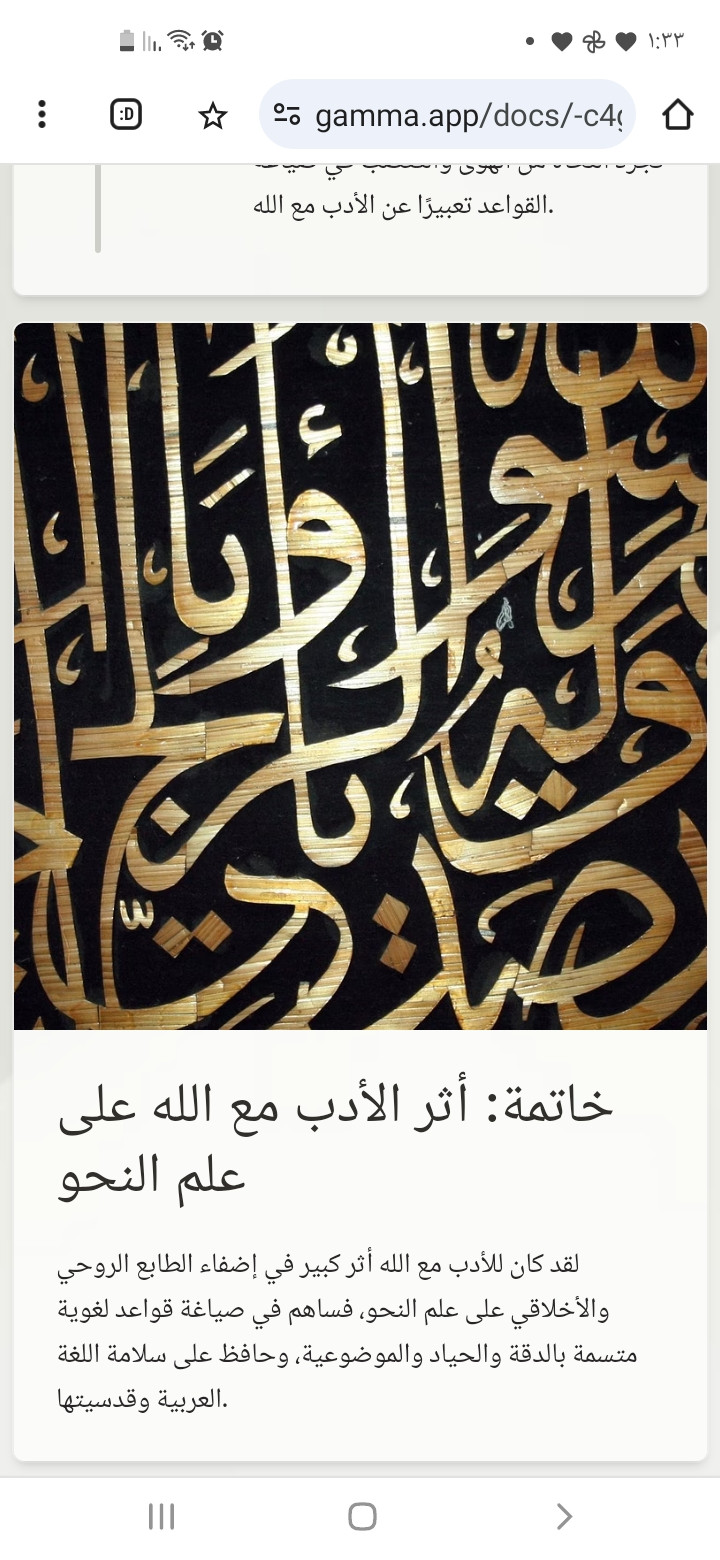 ١:٣٣
gamma.app/docs/-c4
القواعد تعبيرًا عن الأدب مع الله.
خاتمة: أثر الأدب مع الله على
علم النحو
لقد كان للأدب مع الله أثر كبير في إضفاء الطابع الروحي
والأخلاقي على علم النحو، فساهم في صياغة قواعد لغوية
متسمة بالدقة والحياد والموضوعية، وحافظ على سلامة اللغة
العربية وقدسيتها.